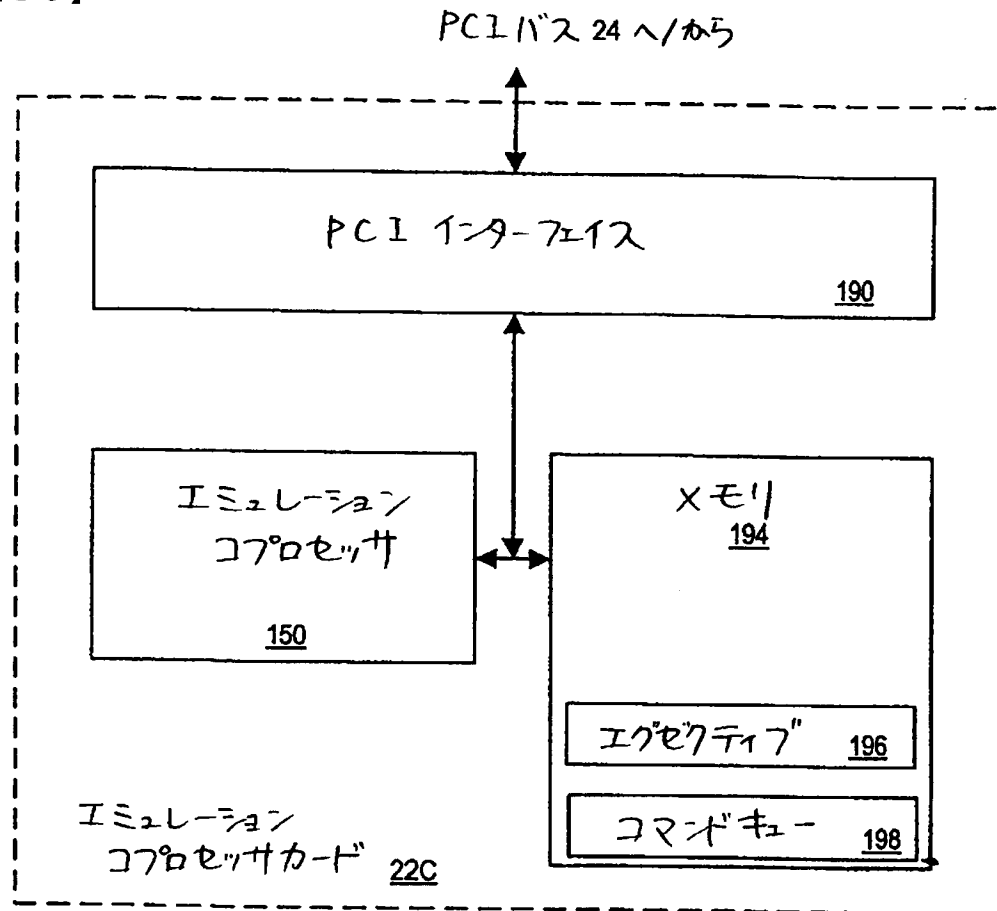 PCIバス 24 へ/から
PCI インターフェイス
190
エミュレーション
コプロセッサ
150
メモリ
194
エグゼクティブ 196
コマンドキュー 198
エミュレーション
コプロセッサカード 22C